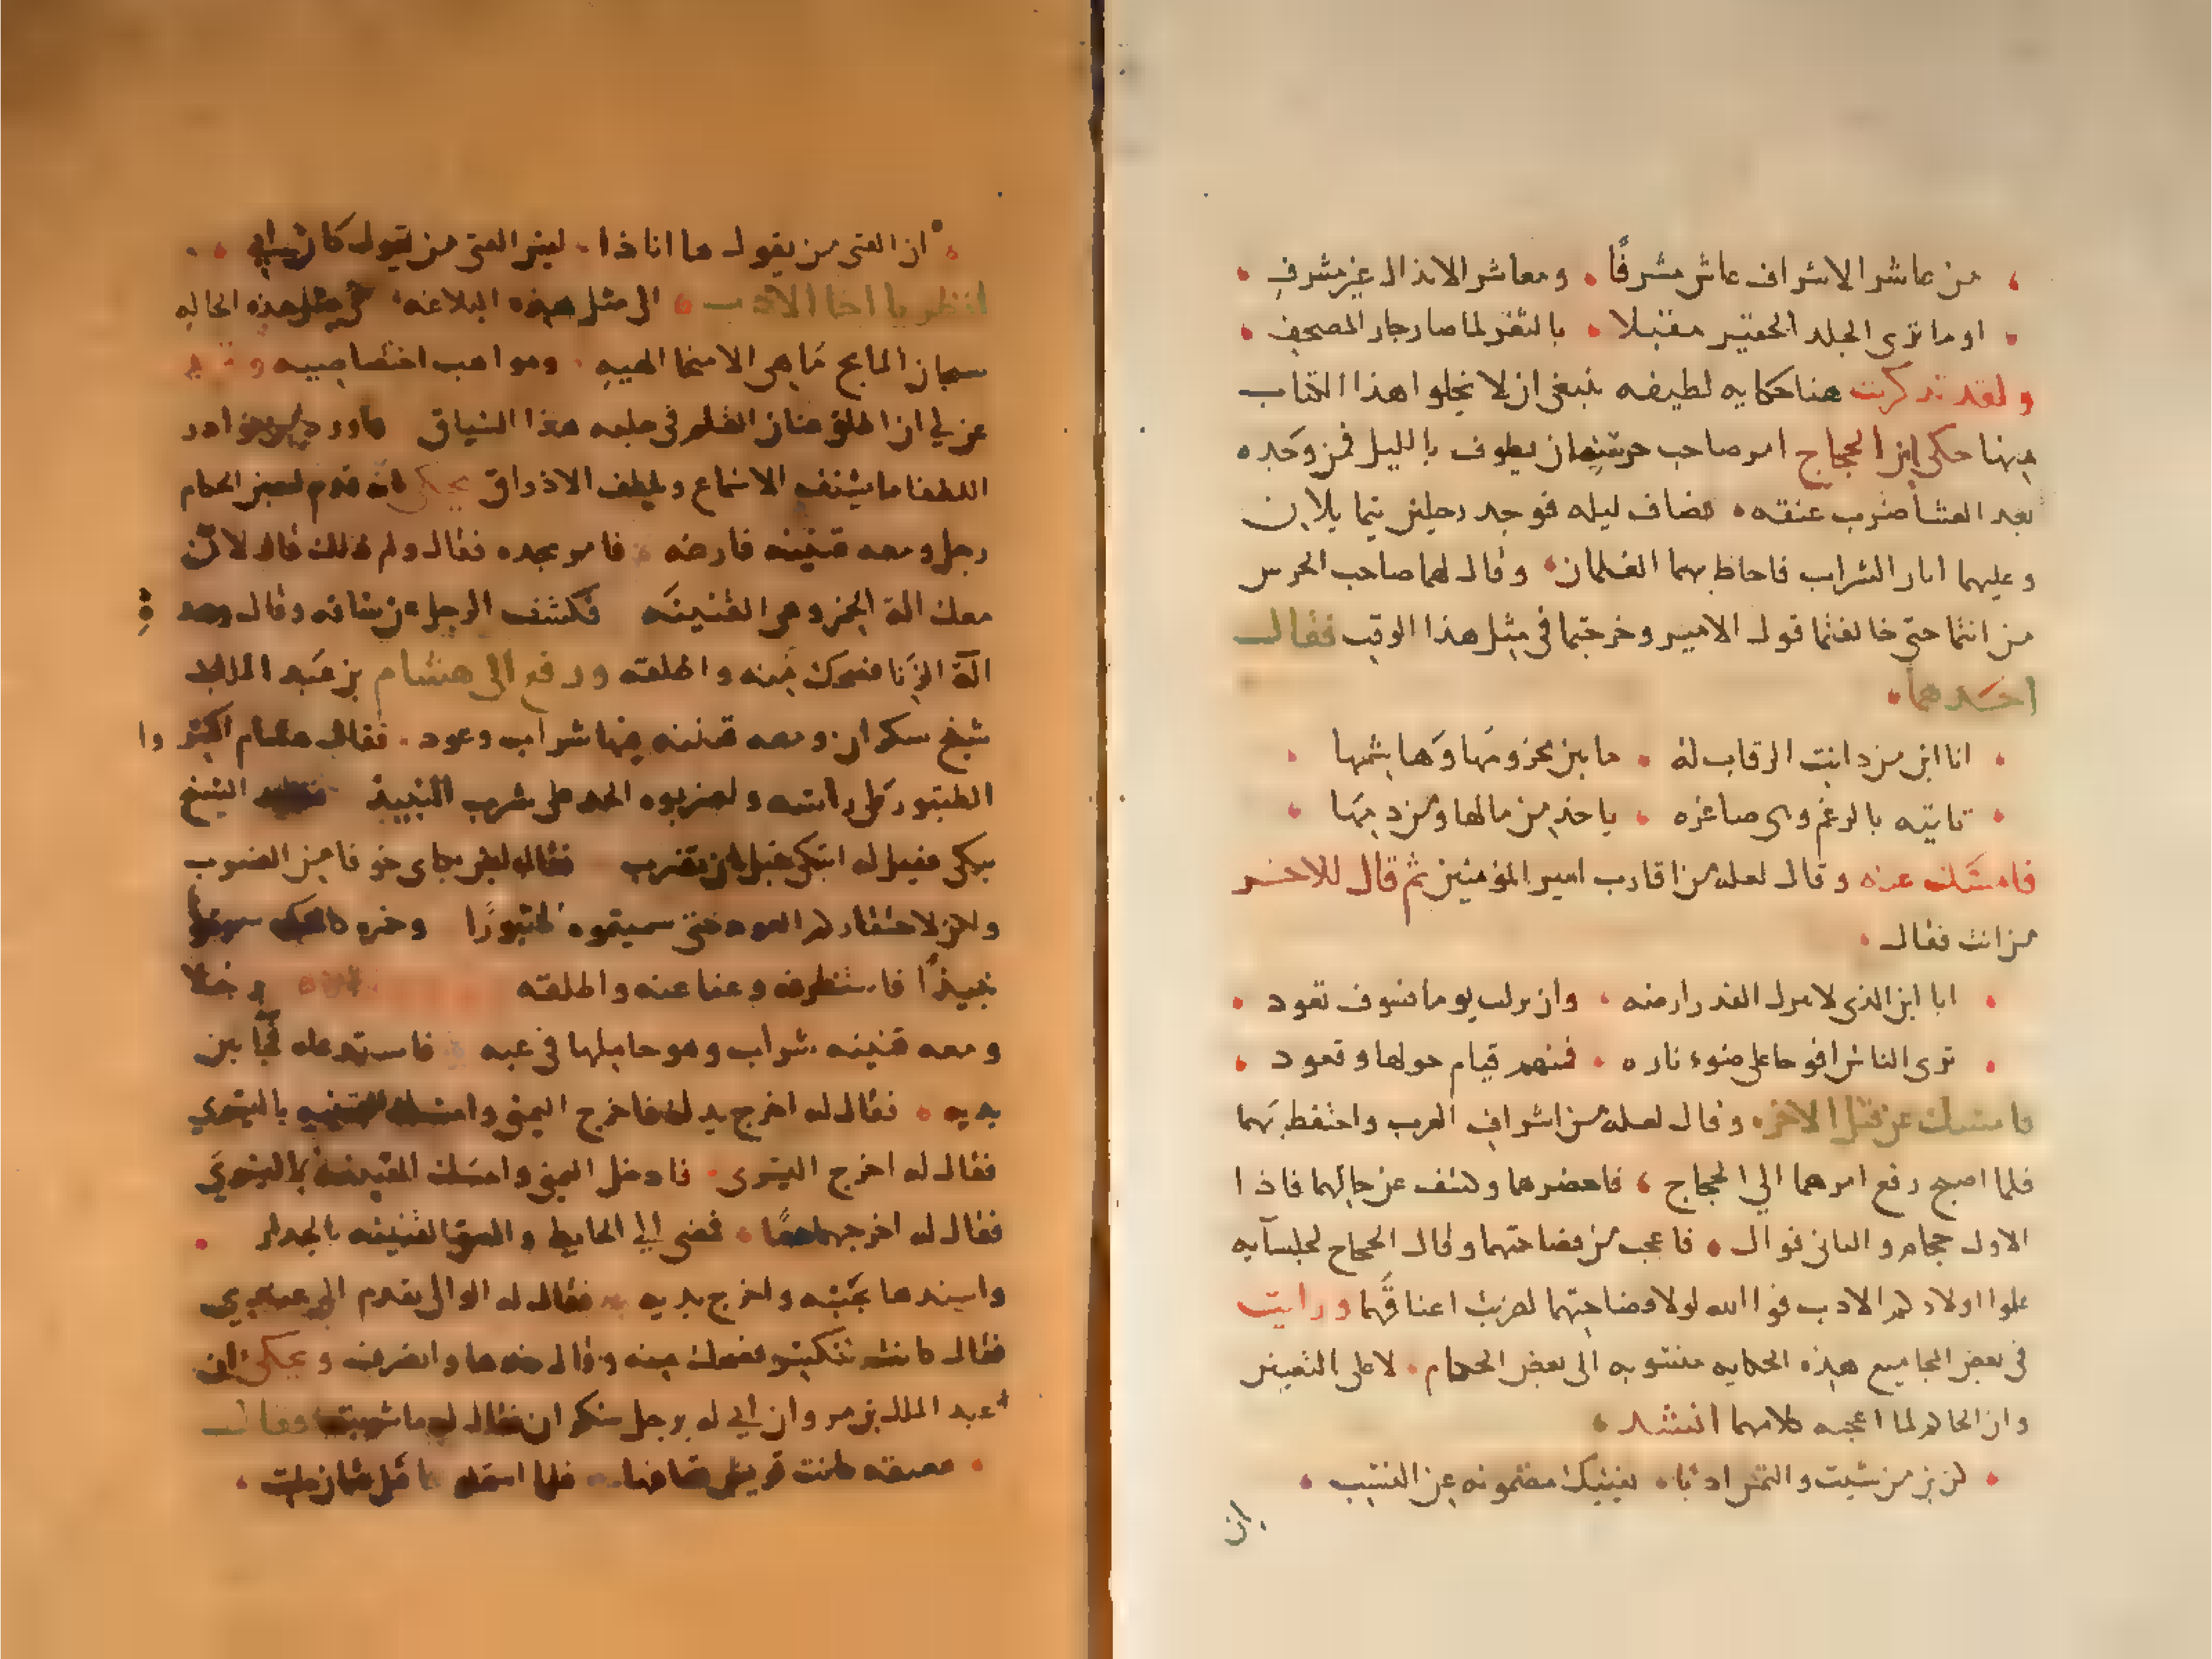 من عاشر الاشراف عاش مشرفًا ومعاشر الانذال غير مشرف
او ما ترى الجلد الحقير مقبلا بالثغر لما صار جار المصحف
ولقد تذكرت هنا حكايه لطيفه ينبغي ان لا يخلوا هذا الكتاب
منها حكي ان الحجاج امر صاحب حرسه ان يطوف بالليل فمن وجده
بعد العشا ضرب عنقه فطاف ليله فوجد رجلين يتمايلان
وعليهما اثار الشراب فاحاط بهما الغلمان وقال لهما صاحب الحرس
من انتما حتى خالفتما قول الامير وخرجتما في مثل هذا الوقت فقال
احدهما
انا ابن من دانت الرقاب له ما بين مخزومها وهاشمها
تاتيه بالرغم وهي صاغره ياخذ من مالها ومن دمها
فامسك عنه وقال لعله من اقارب امير المؤمنين ثم قال للاخر
من انت فقال
انا ابن الذي لا ينزل القدر ارضه وان نزلت يوما فسوف تعود
ترى الناس افوجا على ضوء ناره فمنهم قيام حولها وقعود
فامسك عن قتل الاخر وقال لعله من اشراف العرب واحتفظ بهما
فلما اصبح رفع امرهما الي الحجاج فاحضرهما وكشف عن حالهما فاذا
الاول حجام والثاني فوال فاعجب من فصاحتهما وقال الحجاج لجلسآيه
علموا اولادكم الادب فوالله لولا فصاحتهما لضربت اعناقهما ورايت
في بعض المجاميع هذه الحكايه منسوبه الى بعض الحكام لا على التعيين
وان الحاكم لما اعجبه كلامهما انشد
كن ابن من شيت واكتسب ادبا يغنيك مضمونه عن النسب
ان
ان الفتى من يقول ها انا ذا ليس الفتى من يقول كان ابي
انظر يا اخا الادب الى مثل هذه البلاغه في مثل هذه الحاله
سبحان المانح ما هي الا منحا الهيه ومواهب اختصاصيه وقد
عن لي ان اطلق عنان القلم في حلبه هذا السياق ما ورد من نوادر
اللطفا ما يشنف الاسماع ويلطف الاذواق يحكى انه قدم لبعض الحكام
رجل ومعه قنينه فارغه فامر بحده فقال ولم ذلك قال لان
معك الة الخمر وهي القنينه فكشف الرجل عن ساقه وقال وهذه
آلة الزنا فضحك منه واطلقه ورفع الى هشام بن عبد الملك
شيخ سكران ومعه قنينه فيها شراب وعود فقال هشام اكسروا
الطنبور على راسه واضربوه الحد على شرب النبيذ الشيخ
يبكي فقيل له اتبكي قبل ان تضرب فقال ليس بكاى خوفا من الضرب
ولكن لاحتقاركم العود حتى سميتموه طنبورًا وخمره سميتموها
نبيذًا فاستظرفه وعفا عنه واطلقه رجلا
ومعه قنينه شراب وهو حاملها في عبه فاستدعاه فجا بين
يديه فقال له اخرج يدك فاخرج اليمنى وامسك القنينه باليسرى
فقال له اخرج اليسرى فادخل اليمنى وامسك القنينه باليسرى
فقال له اخرجهما معًا فمضى الي الحايط والصق القنينه بالجدار
واسندها بجنبه واخرج يديه فقال له الوالى تقدم الى عندي
فقال تنكسر فضحك منه وقال خذها وانصرف ويحكى ان
عبد الملك بن مروان اتي له برجل سكران فقال له ما شربت فقال
معتقه كانت قريش تعافها فلما استحلوا قتل عثمان حلت